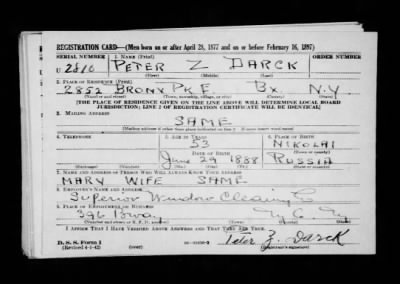 REGISTRATION CARD—(Men born on or after April 28, 1877 and on or before February 16, 1897)
SERIAL NUMBER 1. NAME (Print) ORDER NUMBER
U 2810 PETER Z DARCK
(First) (Middle) (Last)
2. PLACE OF RESIDENCE (Print)
2852 BRONX PK E BX N.Y
(Number and street) (Town, township, village, or city) (County) (State)
[THE PLACE OF RESIDENCE GIVEN ON THE LINE ABOVE WILL DETERMINE LOCAL BOARD
JURISDICTION; LINE 2 OF REGISTRATION CERTIFICATE WILL BE IDENTICAL]
3. MAILING ADDRESS
SAME
[Mailing address if other than place indicated on line 2. If same insert word same]
4. TELEPHONE 5. AGE IN YEARS 6. PLACE OF BIRTH
53 NIKOLAI
DATE OF BIRTH
June 29 1888 RUSSIA
(Exchange) (Number) (Mo.) (Day) (Yr.) (State or country)
7. NAME AND ADDRESS OF PERSON WHO WILL ALWAYS KNOW YOUR ADDRESS
MARY WIFE SAME
8. EMPLOYER'S NAME AND ADDRESS
Superior Window Cleaning Co
9. PLACE OF EMPLOYMENT OR BUSINESS
396 Bway N.Y. C. N.Y.
(Number and street or R. F. D. number) (Town) (County) (State)
I AFFIRM THAT I HAVE VERIFIED ABOVE ANSWERS AND THAT THEY ARE TRUE.
D. S. S. Form 1
(Revised 4-1-42) (over) Peter Z. Darck
(Registrant's signature)